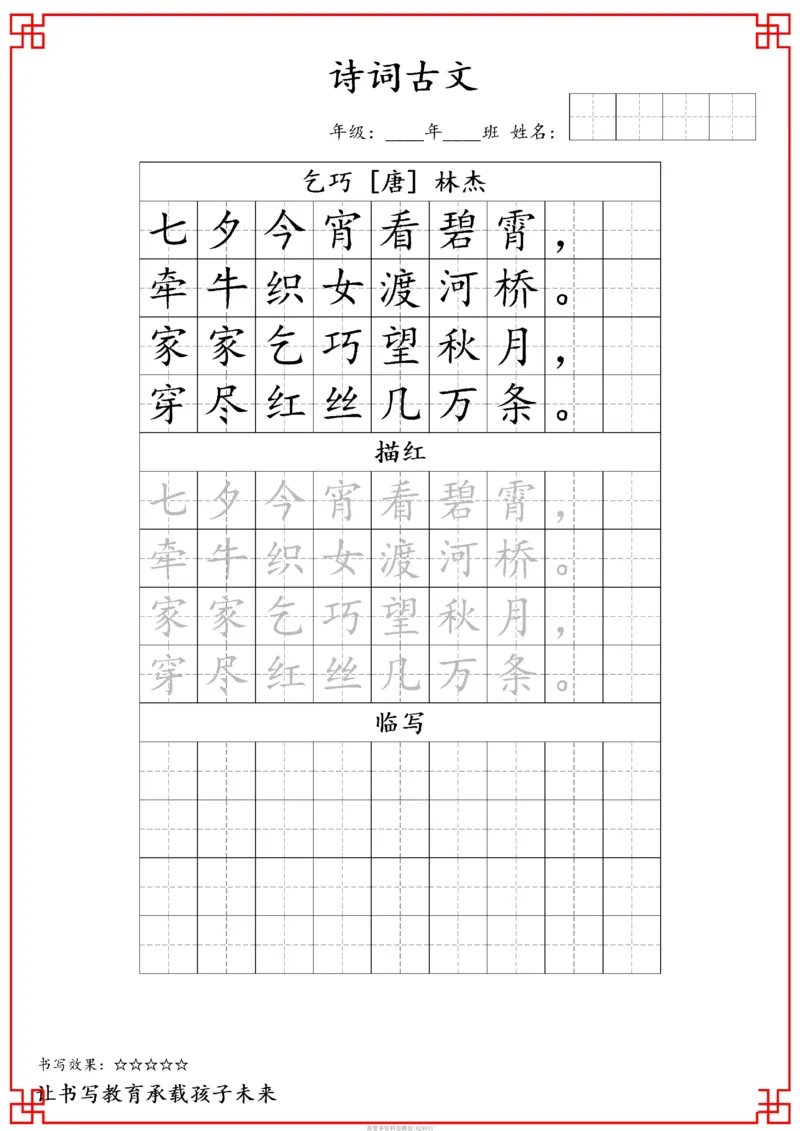 诗词古文
年级：____年____班 姓名：
乞巧［唐］林杰
七夕今宵看碧霄，
牵牛织女渡河桥。
家家乞巧望秋月，
穿尽红丝几万条。
描红
七夕今宵看碧霄，
牵牛织女渡河桥。
家家乞巧望秋月，
穿尽红丝几万条。
临写
书写效果：☆☆☆☆☆
让书写教育承载孩子未来